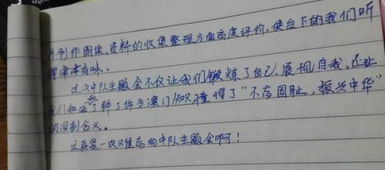 制作图像、资料的收集整理方面高度评价，使台下的我们听
得津津有味。
这次中队主题会不仅让我们锻炼了自己，展现自我，还让
我们知道了许多澳门知识，懂得了“不忘国耻，振兴中华”
的深刻含义。
这真是一次难忘的中队主题会啊！